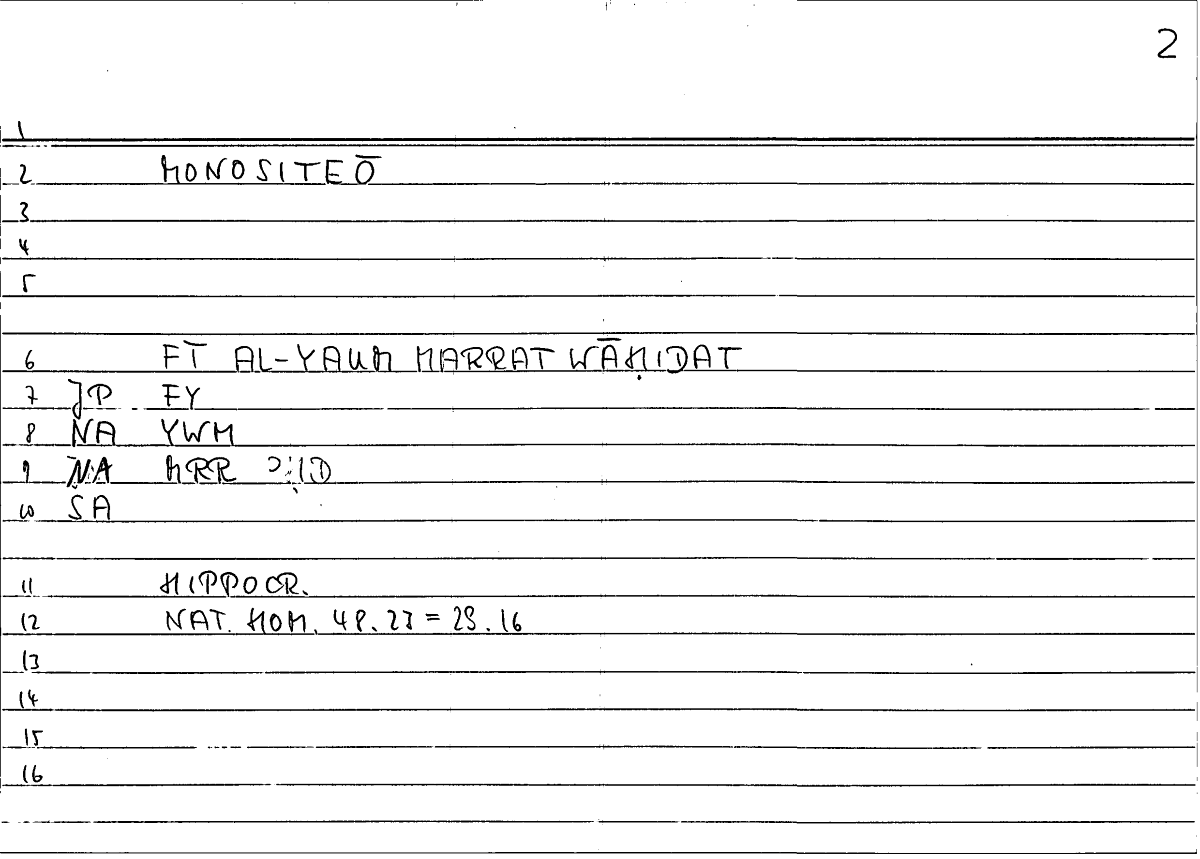 2
1
2 MONOSITEŌ
3
4
5
6 FĪ AL-YAUM MARRAT WĀḤIDAT
7 JP FY
8 NA YWM
9 NA MRR
10 SA
11 HIPPOCR.
12 NAT. HOM. 48.23 = 28.16
13
14
15
16